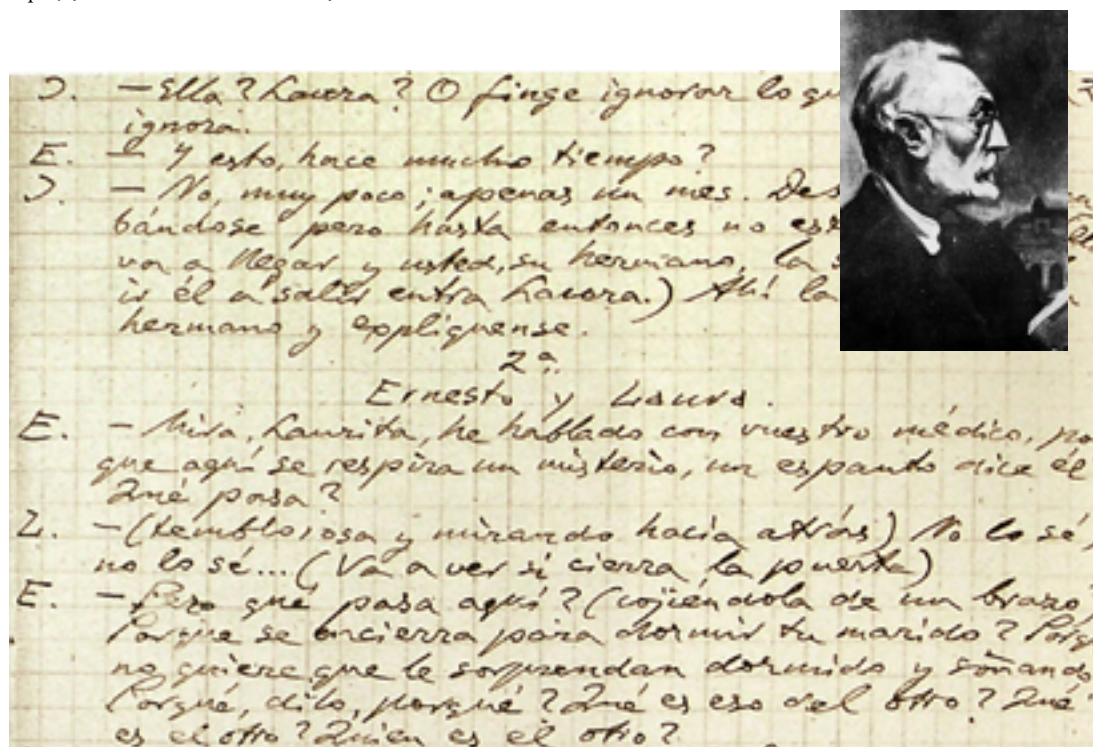 D. — Ella? Laura? O finge ignorar lo qu
ignora.
E. — Y esto, hace mucho tiempo?
D. — No, muy poco; apenas un mes. Des
bándose pero hasta entonces no
va a llegar y usted, su hermano, la s
ir él a salir entra Laura.) Ah! la
hermano y explíquense.
2ª.
Ernesto y Laura.
E. — Mira, Laurita, he hablado con vuestro médico, po
que aquí se respira un misterio, un espanto dice él
Qué pasa?
L. — (temblorosa y mirando hacia atrás) No lo sé,
no lo sé... (Va a ver si cierra la puerta)
E. — Pero qué pasa aquí? (cojiéndola de un brazo)
Porque se encierra para dormir tu marido? Porq
no quiere que le sorprendan dormido y soñando
Porqué, dilo, porqué? Qué es eso del otro? Qué
es el otro? Quien es el otro?